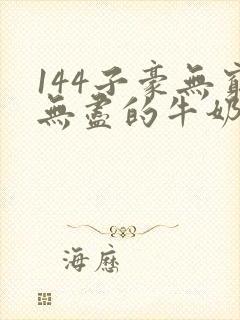 144子豪無
無盡的牛奶
海歷